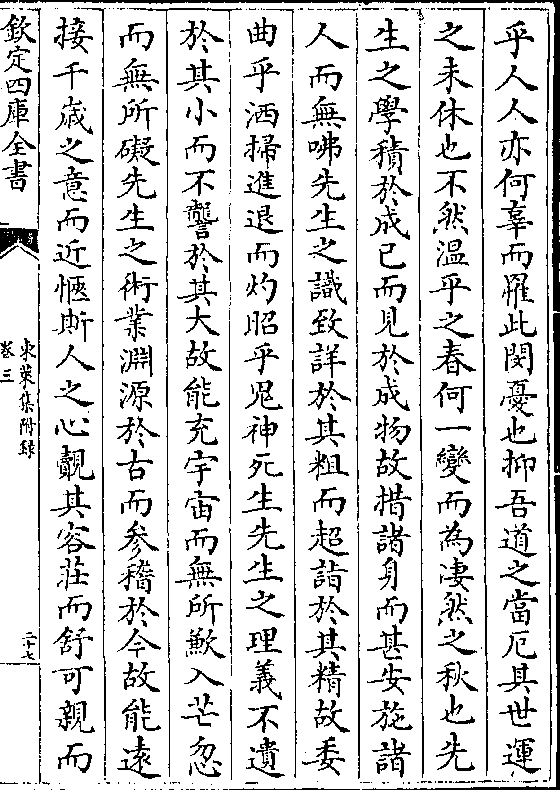 乎人人亦何辜而罹此閔憂也抑吾道之當厄其世運
之未休也不然温乎之春何一變而為凄然之秋也先
生之學積於成己而見於成物故措諸身而甚安施諸
人而無咈先生之識致詳於其粗而超詣於其精故委
曲乎洒掃進退而灼昭乎鬼神死生先生之理義不遺
於其小而不讋於其大故能充宇宙而無所歉入芒忽
而無所礙先生之術業淵源於古而参稽於今故能遠
接千歳之意而近愜斯人之心觀其容莊而舒可親而
欽定四庫全書
東萊集附録
卷三
二十七